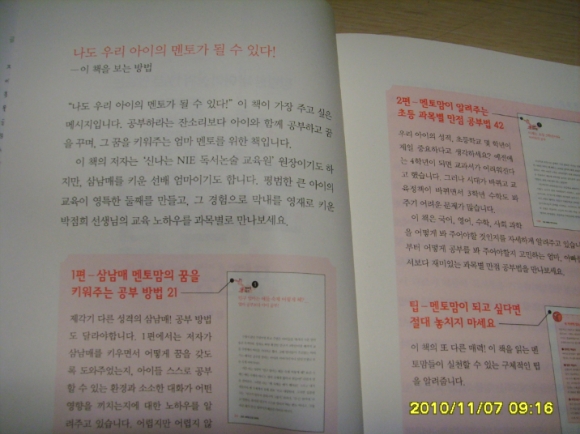 나도 우리 아이의 멘토가 될 수 있다!
—이 책을 보는 방법
"나도 우리 아이의 멘토가 될 수 있다!" 이 책이 가장 주고 싶은
메시지입니다. 공부하라는 잔소리보다 아이와 함께 공부하고 꿈
을 꾸며, 그 꿈을 키워주는 엄마 멘토를 위한 책입니다.
이 책의 저자는 '신나는 NIE 독서논술 교육원' 원장이기도 하
지만, 삼남매를 키운 선배 엄마이기도 합니다. 평범한 큰 아이의
교육이 영특한 둘째를 만들고, 그 경험으로 막내를 영재로 키운
박점희 선생님의 교육 노하우를 과목별로 만나보세요.
1편 – 삼남매 멘토맘의 꿈을
키워주는 공부 방법 21
제각기 다른 성격의 삼남매! 공부 방법
도 달라야합니다. 1편에서는 저자가
삼남매를 키우면서 어떻게 꿈을 갖도
록 도와주었는지, 아이들 스스로 공부
할 수 있는 환경과 소소한 대화가 어떤
영향을 끼치는지에 대한 노하우를 알
려주고 있습니다. 어렵지만 어렵지 않
2편 – 멘토맘이 알려주는
초등 과목별 만점 공부법 42
우리 아이의 성적, 초등학교 몇 학년이
제일 중요하다고 생각하세요? 예전에
는 4학년이 되면 교과서가 어려워진다
고 했습니다. 그러나 시대가 바뀌고 교
육정책이 바뀌면서 3학년 수학도 봐
주기 어려운 문제가 많습니다.
이 책은 국어, 영어, 수학, 사회 과학
을 어떻게 봐 주어야할 것인지를 자세하게 알려주고 있습니
부터 어떻게 공부를 봐 주어야할지 고민하는 엄마, 아빠
서보다 재미있는 과목별 만점 공부법을 만나보세요.
팁 – 멘토맘이 되고 싶다면
절대 놓치지 마세요
이 책의 또 다른 매력! 이 책을 읽는 멘
토맘들이 실천할 수 있는 구체적인 팁
을 알려줍니다.
2010/11/07 09:16